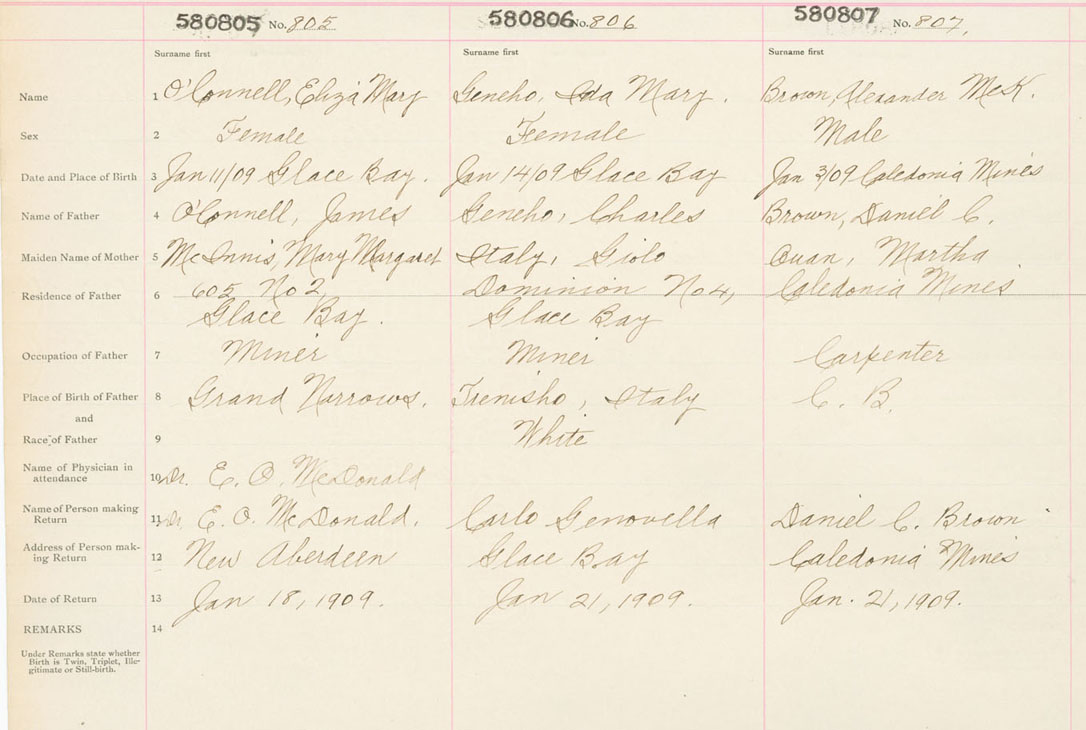 580805 No. 805 580806 No. 806 580807 No. 807.
Surname first Surname first Surname first
Name 1 O'Connell, Eliza Mary Geneho, Ida Mary. Brown, Alexander McK.
Sex 2 Female Female Male
Date and Place of Birth 3 Jan 11/09 Glace Bay. Jan 14/09 Glace Bay Jan 3/09 Caledonia Mines
Name of Father 4 O'Connell, James Geneho, Charles Brown, Daniel C.
Maiden Name of Mother 5 McInnis, Mary Margaret Italy, Giolo Martha
Residence of Father 6 605 No 2 Dominion No 4, Caledonia Mines
Glace Bay. Glace Bay
Occupation of Father 7 Miner Miner Carpenter
Place of Birth of Father 8 Grand Narrows. Trenisho, Italy C. B.
and
Race of Father 9 White
Name of Physician in
attendance 10 Dr. E. O. McDonald
Name of Person making
Return 11 Dr. E. O. McDonald. Carlo Genovella Daniel C. Brown
Address of Person mak-
ing Return 12 New Aberdeen Glace Bay Caledonia Mines
Date of Return 13 Jan 18, 1909. Jan 21, 1909. Jan. 21, 1909.
REMARKS 14
Under Remarks state whether
Birth is Twin, Triplet, Ille-
gitimate or Still-birth.